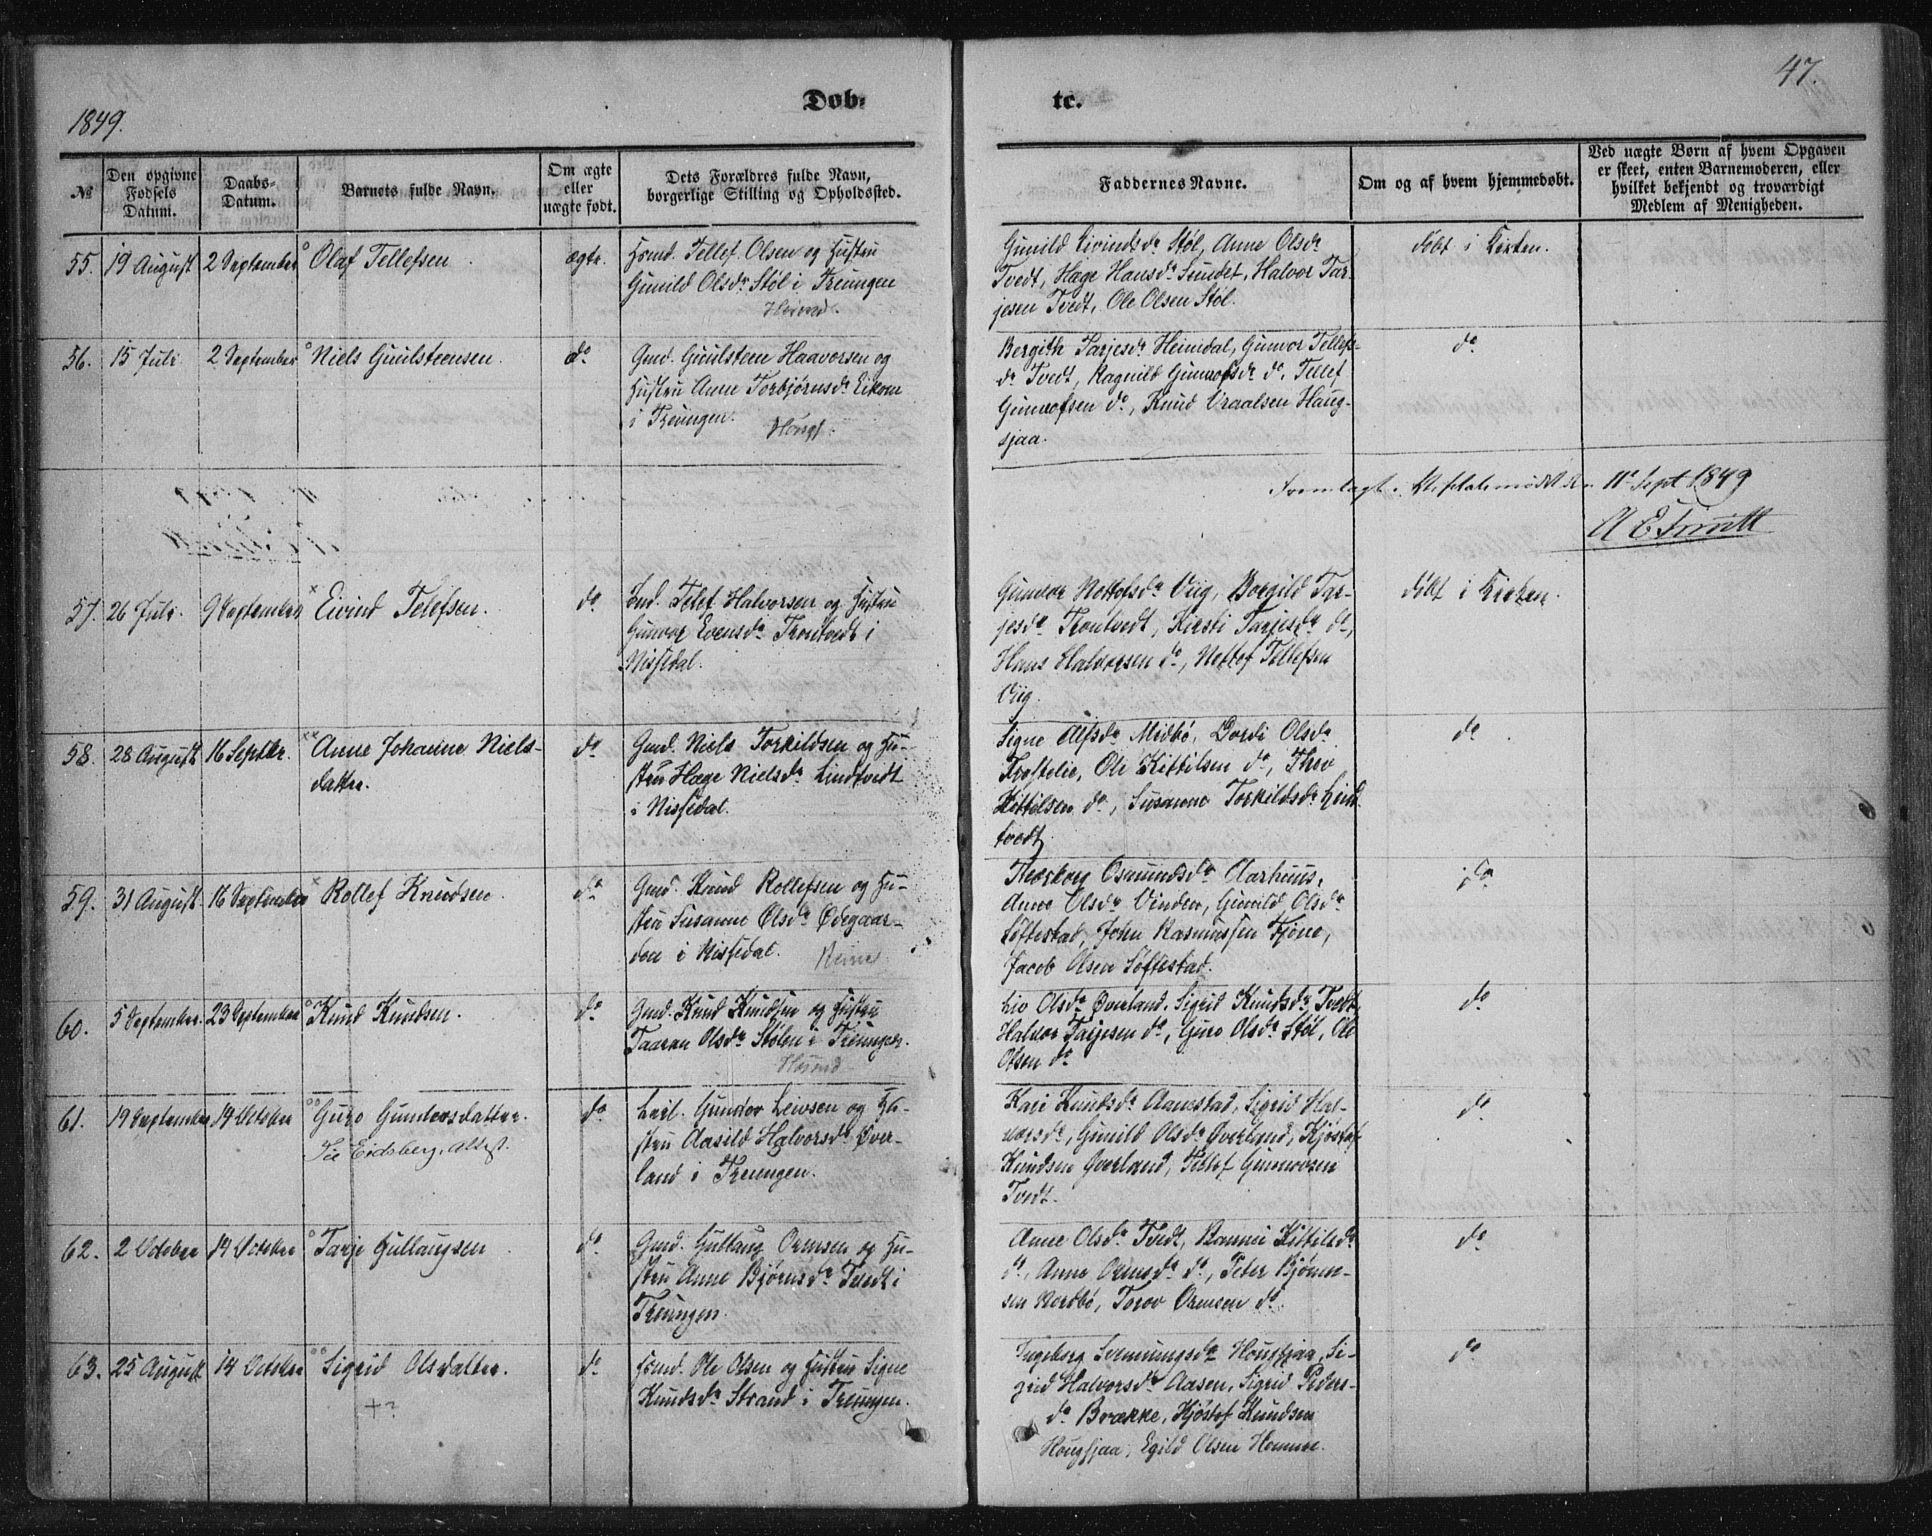 1849.
Døb-
te.
47.
№
Den opgivne Fødsels Datum.
Daabs-Datum.
Barnets fulde Navn.
Om ægte eller uægte født.
Dets Forældres fulde Navn, borgerlige Stilling og Opholdssted.
Faddernes Navne.
Om og af hvem hjemmedøbt.
Ved uægte Børn af hvem Opgaven er skeet, enten Barnemoderen, eller hvilket bekjendt og troværdigt Medlem af Menigheden.
55. 19 August 2 September Olaf Tellefsen. ægte.
Tellef Olsen og Hustru
Gunild Olsdr Støl i Treungen
Gunild Eivindsdr Støl, Anne Olsdr
Tvedt, Hæge Hansdr Sundet, Halvor Tar-
jesen Tvedt, Ole Olsen Støl.
døbt i Kirken.
56. 15 Juli 2 September Niels Guulsteensen do
Gmd. Guulsteen Haavorsen og
Hustru Anne Torbjørnsdr Eikom
i Treungen.
Bergith Tarjesdr Heimdal, Gunvor Tellefs-
dr Tvedt, Ragnild Gunnofsdr do, Tellef
Gunnofsen do, Knud Vraalsen Haug-
sjaa.
do
Fremlagt i 11te Sept 1849
57. 26 Juli 9 September Eivind Telefsen. do
Telef Halvorsen og Hustru
Gunvor Evensdr Trontvedt i
Nissedal.
Gunvor Nottofsdr Viig, Borgild Tar-
jesdr Trontvedt, Kirsti Tarjesdr do,
Hans Halvorsen do, Nottof Tellefsen
Viig.
døbt i Kirken.
58. 28 August 16 Septbr. Anne Johanne Niels-
datter.
do
Gmd. Niels Torkildsen og Hu-
stru Hæge Nielsdr Lindtvedt
i Nissedal.
Signe Alfsdr Midbö, Dordi Olsdr
Trostelie, Ole Kittilsen do,
Kittilsen do, Susanne Torkildsdr Lind-
tvedt.
do
59. 31 August 16 September Rollef Knudsen do
Gmd. Knud Rollefsen og Hu-
stru Susanne Olsdr Ødegaar-
den i Nissedal.
Thorborg Osmundsdr Aarhuus,
Anne Olsdr Vinden, Gunild Olsdr
Søftestad, John Rasmussen Fjone,
Jacob Olsen Søftestad.
do
60. 5 September. 23 September Knud Knudsen. do
Gmd. Knud Knudsen og Hustru
Taaran Olsdr Stölen i Treungen.
Liv Olsdr Øverland, Sigrid Knudsdr Tvedt,
Halvor Tarjesen do, Guro Olsdr Støl, Ole
Olsen do
do
61. 19 September 14 October Guro Gundersdatter.
Til Eidsberg, Attest.
do
Leil. Gunder Leivsen og Hu-
stru Aasild Halvorsdr Øver-
land i Treungen.
Kari Knudsdr Aamstad, Sigrid Hal-
vorsdr, Gunild Olsdr Øverland, Kjøstof
Knudsen Øverland, Tellef Gunnorsen
Tvedt.
do
62. 2 October 14 October Tarje Gullaugsen do
Gmd. Gullaug Ormsen og Hu-
stru Anne Bjørnsdr Tvedt i
Treungen.
Anne Olsdr Tvedt, Kittilsdr
do, Anne Ormsdr do, Peter Bjørn-
sen Nordbö, Torov Ormsen do
do
63. 25 August 14 October Sigrid Olsdatter. do
+?
Ole Olsen og Hustru Signe
Knudsdr Strand i Treungen.
Ingeborg Svenningsdr Hougsjaa, Si-
grid Halvorsdr Aasen, Sigrid Peders-
dr Brække, Kjøstof Knudsen
Hougsjaa, Egild Olsen Homme.
do